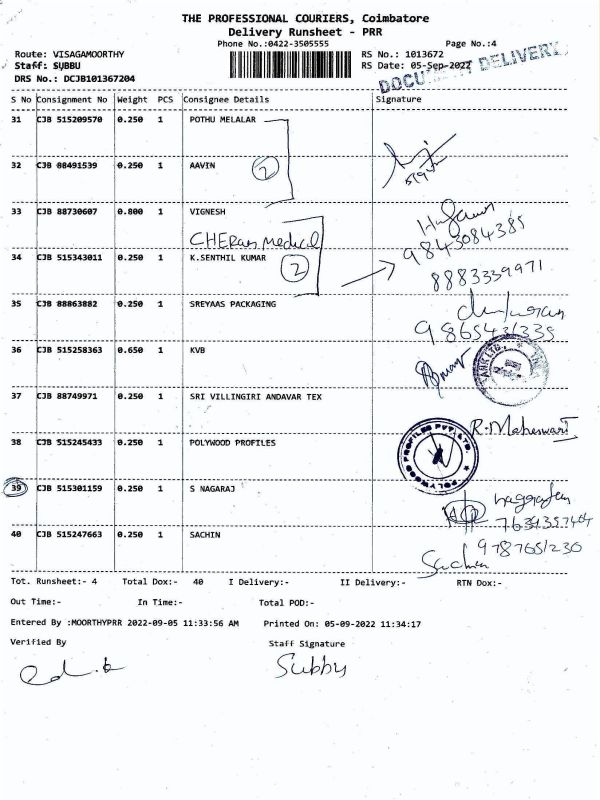 THE PROFESSIONAL COURIERS, Coimbatore
Delivery Runsheet - PRR
Phone No.:0422-3505555 Page No.:4
Route: VISAGAMOORTHY RS No.: 1013672
Staff: SUBBU RS Date: 05-Sep-2022
DOCUMENT DELIVERY
DRS No.: DCJB101367204
S No Consignment No Weight PCS Consignee Details Signature
31 CJB 515209570 0.250 1 POTHU MELALAR
32 CJB 88491539 0.250 1 AAVIN 2
33 CJB 88730607 0.800 1 VIGNESH
CHERAN Medical 9843084385
34 CJB 515343011 0.250 1 K.SENTHIL KUMAR 2 8883339971
35 CJB 88863882 0.250 1 SREYAAS PACKAGING
9865431335
36 CJB 515258363 0.650 1 KVB
37 CJB 88749971 0.250 1 SRI VILLINGIRI ANDAVAR TEX
R. Maheswari
38 CJB 515245433 0.250 1 POLYWOOD PROFILES POLYWOOD PROFILES PVT. LTD.
39 CJB 515301159 0.250 1 S NAGARAJ
40 CJB 515247663 0.250 1 SACHIN 9787651230
Sachin
Tot. Runsheet:- 4 Total Dox:- 40 I Delivery:- II Delivery:- RTN Dox:-
Out Time:- In Time:- Total POD:-
Entered By :MOORTHYPRR 2022-09-05 11:33:56 AM Printed On: 05-09-2022 11:34:17
Verified By Staff Signature
Subby